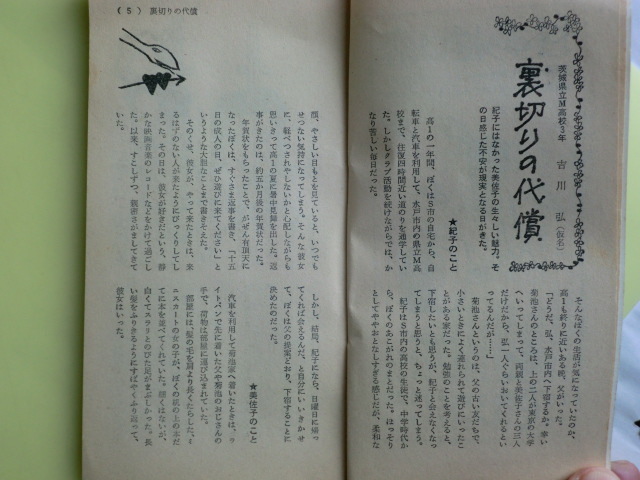 裏切りの代償
茨城県立M高校3年
吉川 弘(仮名)
紀子にはなかった美佐子の生々しい魅力。そ
の日感じた不安が現実となる日がきた。
★紀子のこと
高1の一年間、ぼくはS市の自宅から、自
転車と汽車を利用して、水戸市内の県立M高
校まで、往復四時間近い道のりを通学してい
た。しかしクラブ活動を続けながらでは、か
なり苦しい毎日だった。
そんなぼくの生活が気になっていたのか、
高1も終りに近いある晩、父がいった。
「どうだ、弘、水戸市内へ下宿するか。幸い
菊池さんのところは、上の二人が東京の大学
へいってしまって、両親と美佐子さんの三人
だけだから、弘一人ぐらいおいてくれるとい
ってるんだが……」
菊池さんというのは、父の古い友だちで、
小さいときによく連れられて遊びにいったこ
とがある家だった。勉強のことを考えると、
下宿したいとも思うが、紀子と会えなくなっ
てしまうと思うと、ちょっと迷ってしまう。
紀子はS市内の高校の生徒で、中学時代か
ら、ぼくのあこがれのまとだった。ほっそり
としてややおとなしすぎる感じだが、柔和な
(5) 裏切りの代償
顔、やさしい目もとを見ていると、いつでも
せつない気持になってしまう。そんな彼女
に、軽べつされやしないかと心配しながらも
思いきって高1の夏に暑中見舞を出した。返
事がきたのは、約五か月後の年賀状だった。
年賀状をもらったことで、がぜん有頂天に
なったぼくは、すぐさま返事を書き、「十五
日の成人の日、ぜひ遊びに来てください」と
いうような大胆なことまで書きそえた。
そのくせ、彼女が、やって来たときは、来
るはずのない人が来たようにびっくりしてし
まった。その日は、彼女が好きだという、静
かな映画音楽のレコードなどをかけて過ごし
た。以来、すこしずつ、親密さがましてきて
いた。
しかし、結局、紀子になら、日曜日に帰っ
てくれば会えるんだ、と自分にいいきかせ
て、ぼくは父の提案どおり、下宿することに
決めたのだった。
★美佐子のこと
汽車を利用して菊池家へ着いたときは、ラ
イトバンで先に着いた父や菊池のおじさんの
手で、荷物は部屋に運び込まれていた。
部屋には、髪の毛を肩より長くたらした、ミ
ニスカートの女の子が、ぼくの紙の上の本だ
てに本を並べてくれていた。細くはないが、
白くてスラリとのびた足がまぶしかった。長
い髪をふりきるようにすばやくふり返って、
彼女はいった。